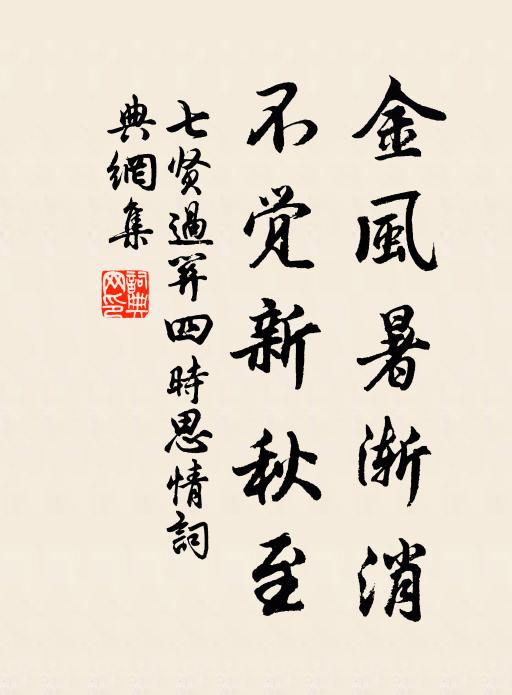 金風暑渐消
不觉新秋至
七贤過關四時思情詞
典網集
詞典網印